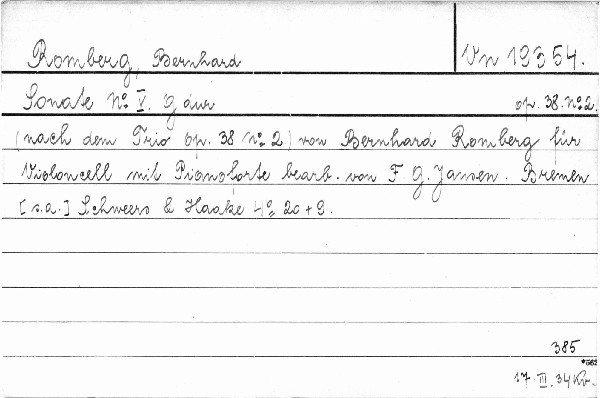 Romberg, Bernhard
Vn 19354.
Sonate No. V. G dur op. 38. No 2.
(nach dem Trio op. 38 No 2) von Bernhard Romberg für
Violoncell mit Pianoforte bearb. von F. G. Jansen. Bremen
[s.a.] Schweers & Haake 4o 20 + 9.
385
*562
17. III. 34 Kv.